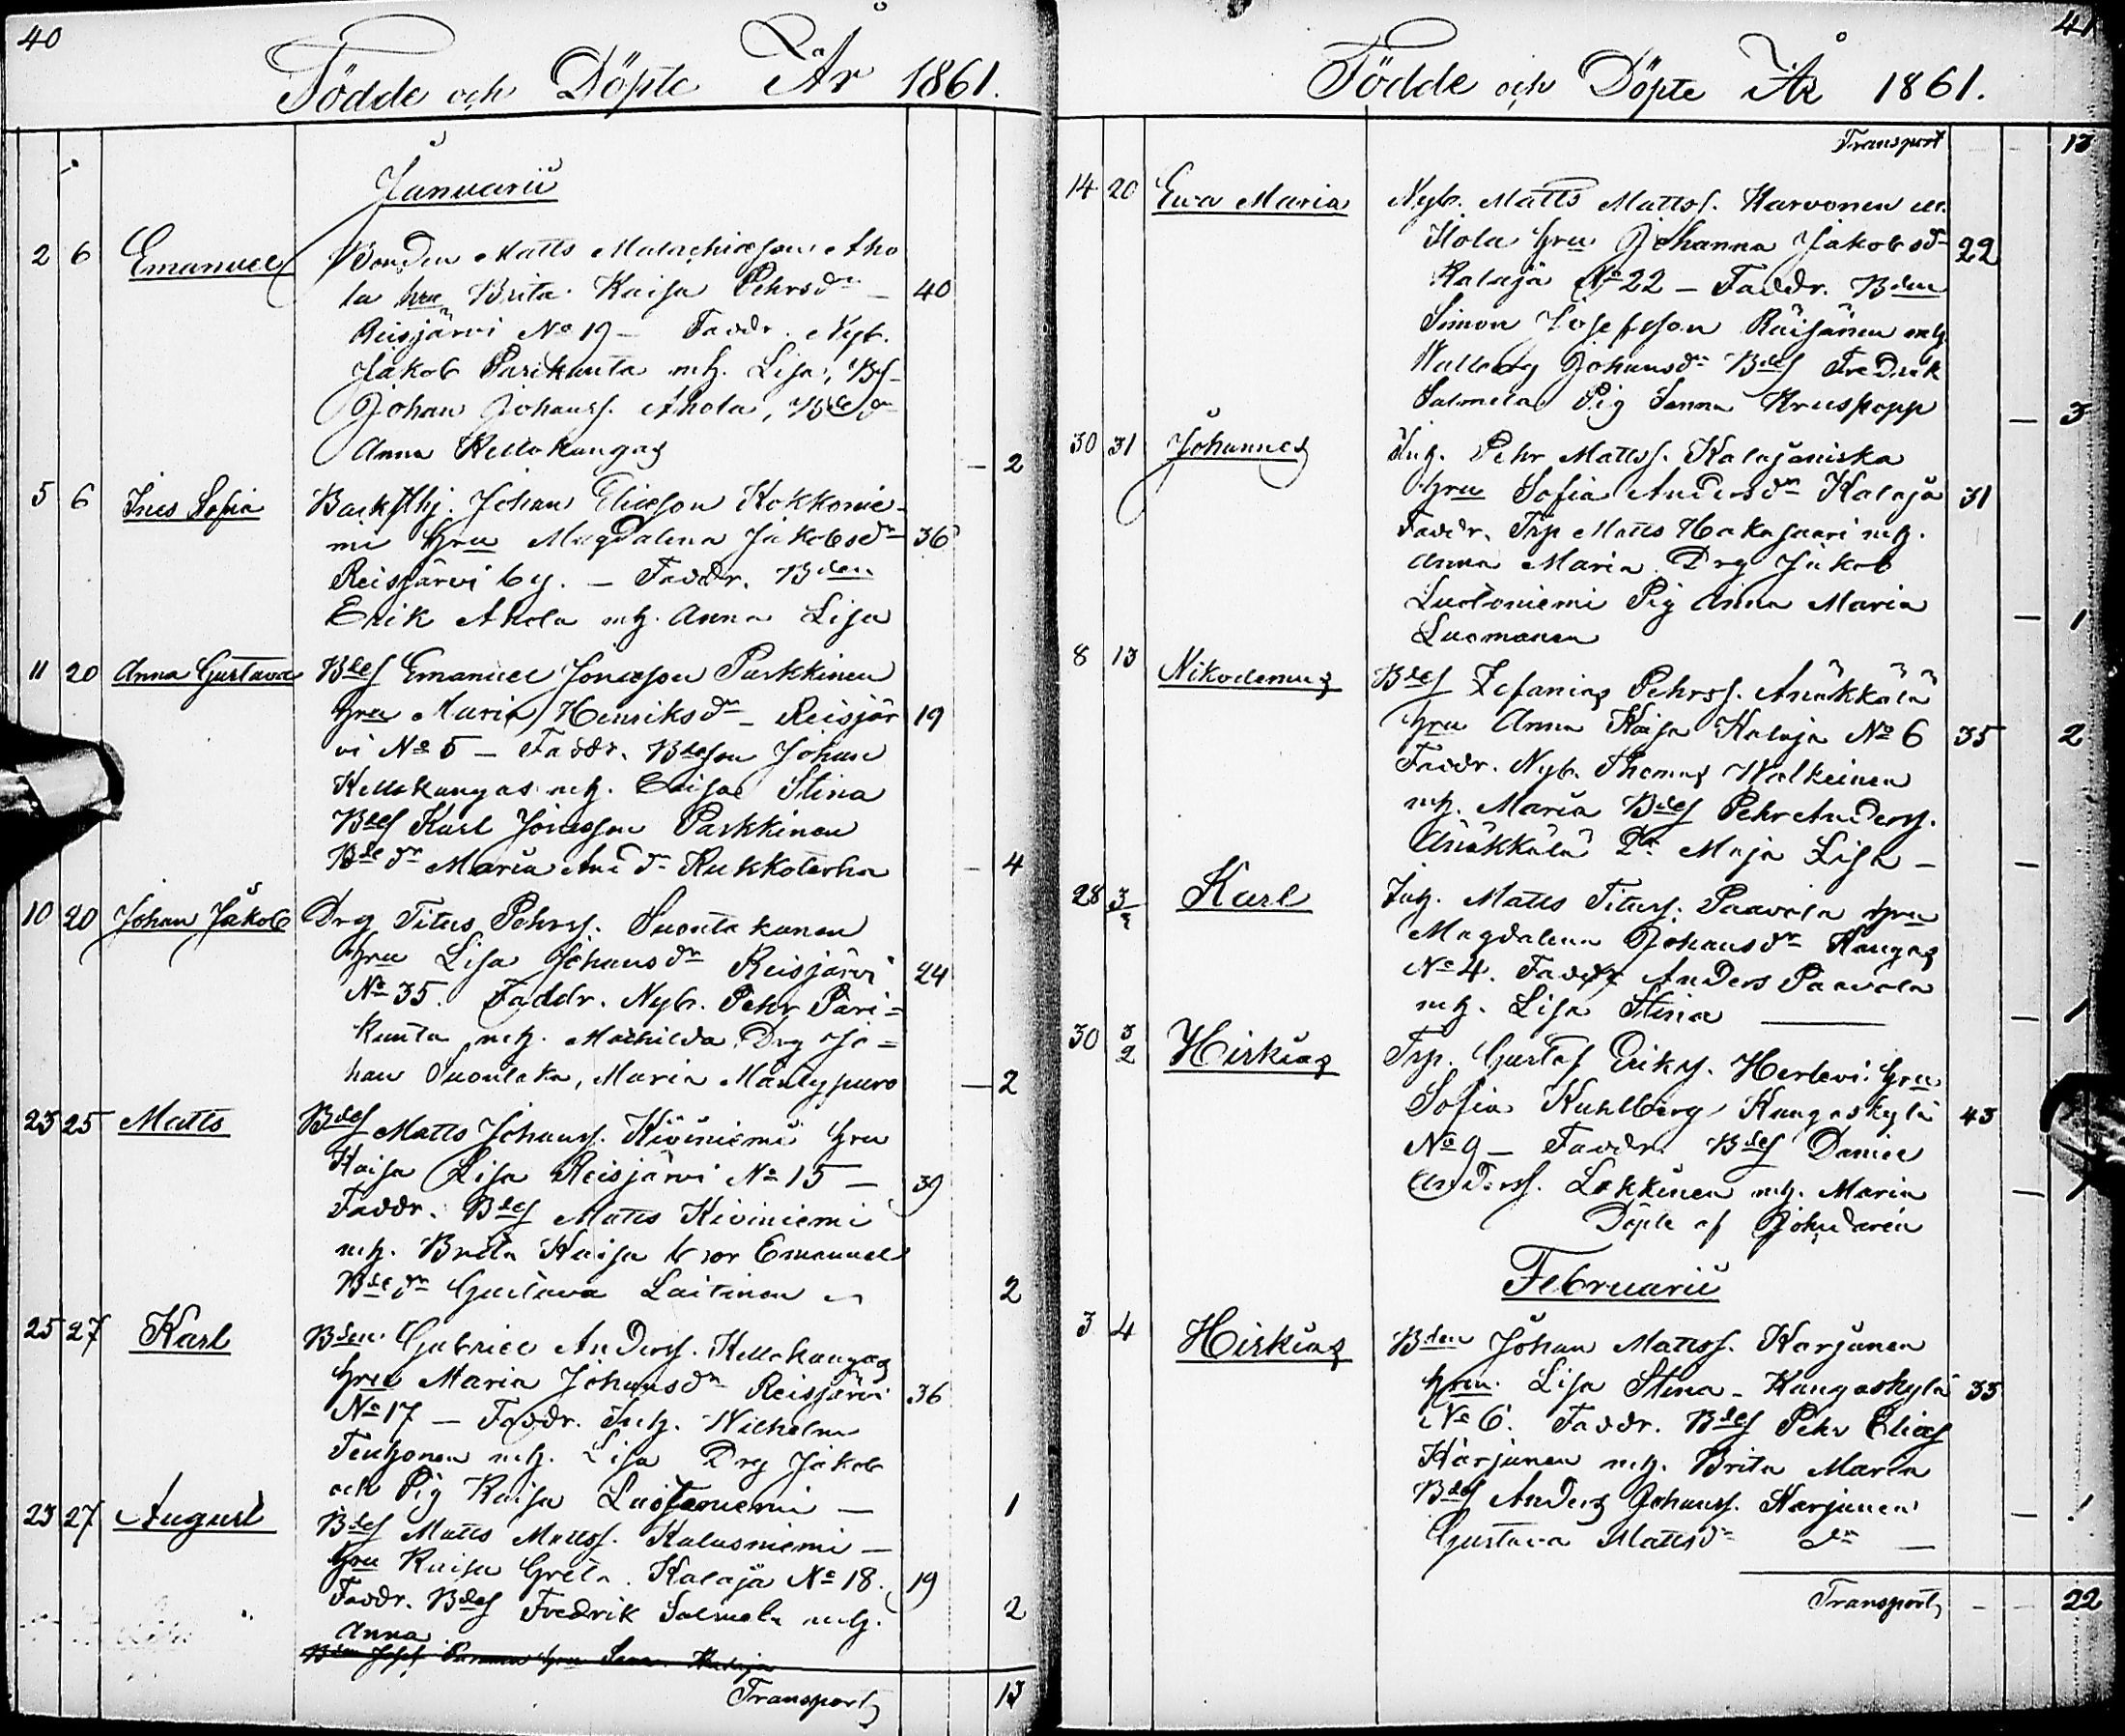 40
Födde och Döpte År 1861.
Januarii
2 6 Emanuel Bonden Matts Malachiasson Aho
la hru Brita Kaisa Pehrsdr – 40
Reisjärvi No 19 – Faddr. Nyb.
Jakob Parikunta mh. Lisa, Bs
Johan Johanss. Ahola, Bdedr
Anna Kellokangas – 2
5 6 Ines Sofia Backsthj. Johan Eliasson Kokkonie-
mi hru Magdalena Jakobsdr 36
Reisjärvi by. – Faddr. Bden
Erik Ahola mh. Anna Lisa
11 20 Anna Gustava Bdes Emanuel Jonasson Parkkinen
hru Maria Henriksdr – Reisjär 19
vi No 5 – Faddr. Bdeson Johan
Kellokangas mh. Caisa Stina
Bdes Karl Jonasson Parkkinen
Bdedr Maria And dr – 4
10 20 Johan Jakob Drg Titus Pehrss. Suontakanen
hru Lisa Johansdr Reisjärvi 24
No 35. Faddr. Nyb. Pehr Pari=
kunta mh. Mathilda. Drg Jo=
han Suontaka, Maria Mäntypuro – 2
23 25 Matts Bdes Matts Johanss. Kiviniemi hru
Kaisa Lisa Reisjärvi No 15 – 39
Faddr. Bdes Matts Kiviniemi
mh. Brita Kaisa bror Emanuel
Bdedr Gustava Laitinen 2
25 27 Karl Bden Gabriel Anderss. Kellokangas
hru Maria Johansdr Reisjärvi 36
No 17 – Faddr. Inh. Wilhelm
mh. Lisa Drg Jakob
och Pig Kaisa Luotoniemi – 1
23 27 August Bdes Matts Mattss. Kalusniemi –
hru Kaisa Greta. Kalaja No 18. 19
Faddr. Bdes Fredrik Salmela mh. 2
Anna
Transport 13
41
Födde och Döpte År 1861.
Transport – – 13
14 20 Ewa Maria Nyb. Matts Mattss. Karvonen ell.
Hola hru Johanna Jakobsdr 22
Kalaja No 22 – Faddr. Bden
Simon Josefsson Räisänen mh
Wallborg Johansdr Bdes Fredrik
Salmela Pig Sanna Kruskopp – 3
30 31 Johannes Inh. Pehr Mattss. Kalajaniska
hru Sofia Andersdr Kalaja 31
Faddr. Trp Matts Hakasaari mh.
Anna Maria. Drg Jakob
Luotoniemi Pig Anna Maria – 1
Luomanen
8 13 Nikodemus Bdes Zefanias Pehrss. Anäkkälä
hru Anna Kaisa Kalaja No 6 35 2
Faddr. Nyb. Thomas Walkeinen
mh. Maria Bdes Pehr Anderss.
Anäkkälä Dr Maja Lisa – –
28 3/2 Karl Inh. Matts Tituss. Paavola hru
Magdalena Johansdr Kangas
No 4. Faddr Anders Paavola
mh. Lisa Stina – 1
30 3/2 Hiskias Trp. Gustaf Erikss. Herlevi hru
Sofia Kuhlberg Kangaskylä 43
No 9 – Faddr. Bdes Daniel
Anderss. Lokkinen mh. Maria – 1
Döpte af
Februarii
3 4 Hiskias Bden Johan Mattss. Karjunen
hru. Lisa Stina – Kangaskylä 33
No 6. Faddr. Bdes Pehr Elias
Karjunen mh. Brita Maria
Bdes Anders Johanss. Karjunen – 1
Gustava Mattsdr dr –
Transport – – 22